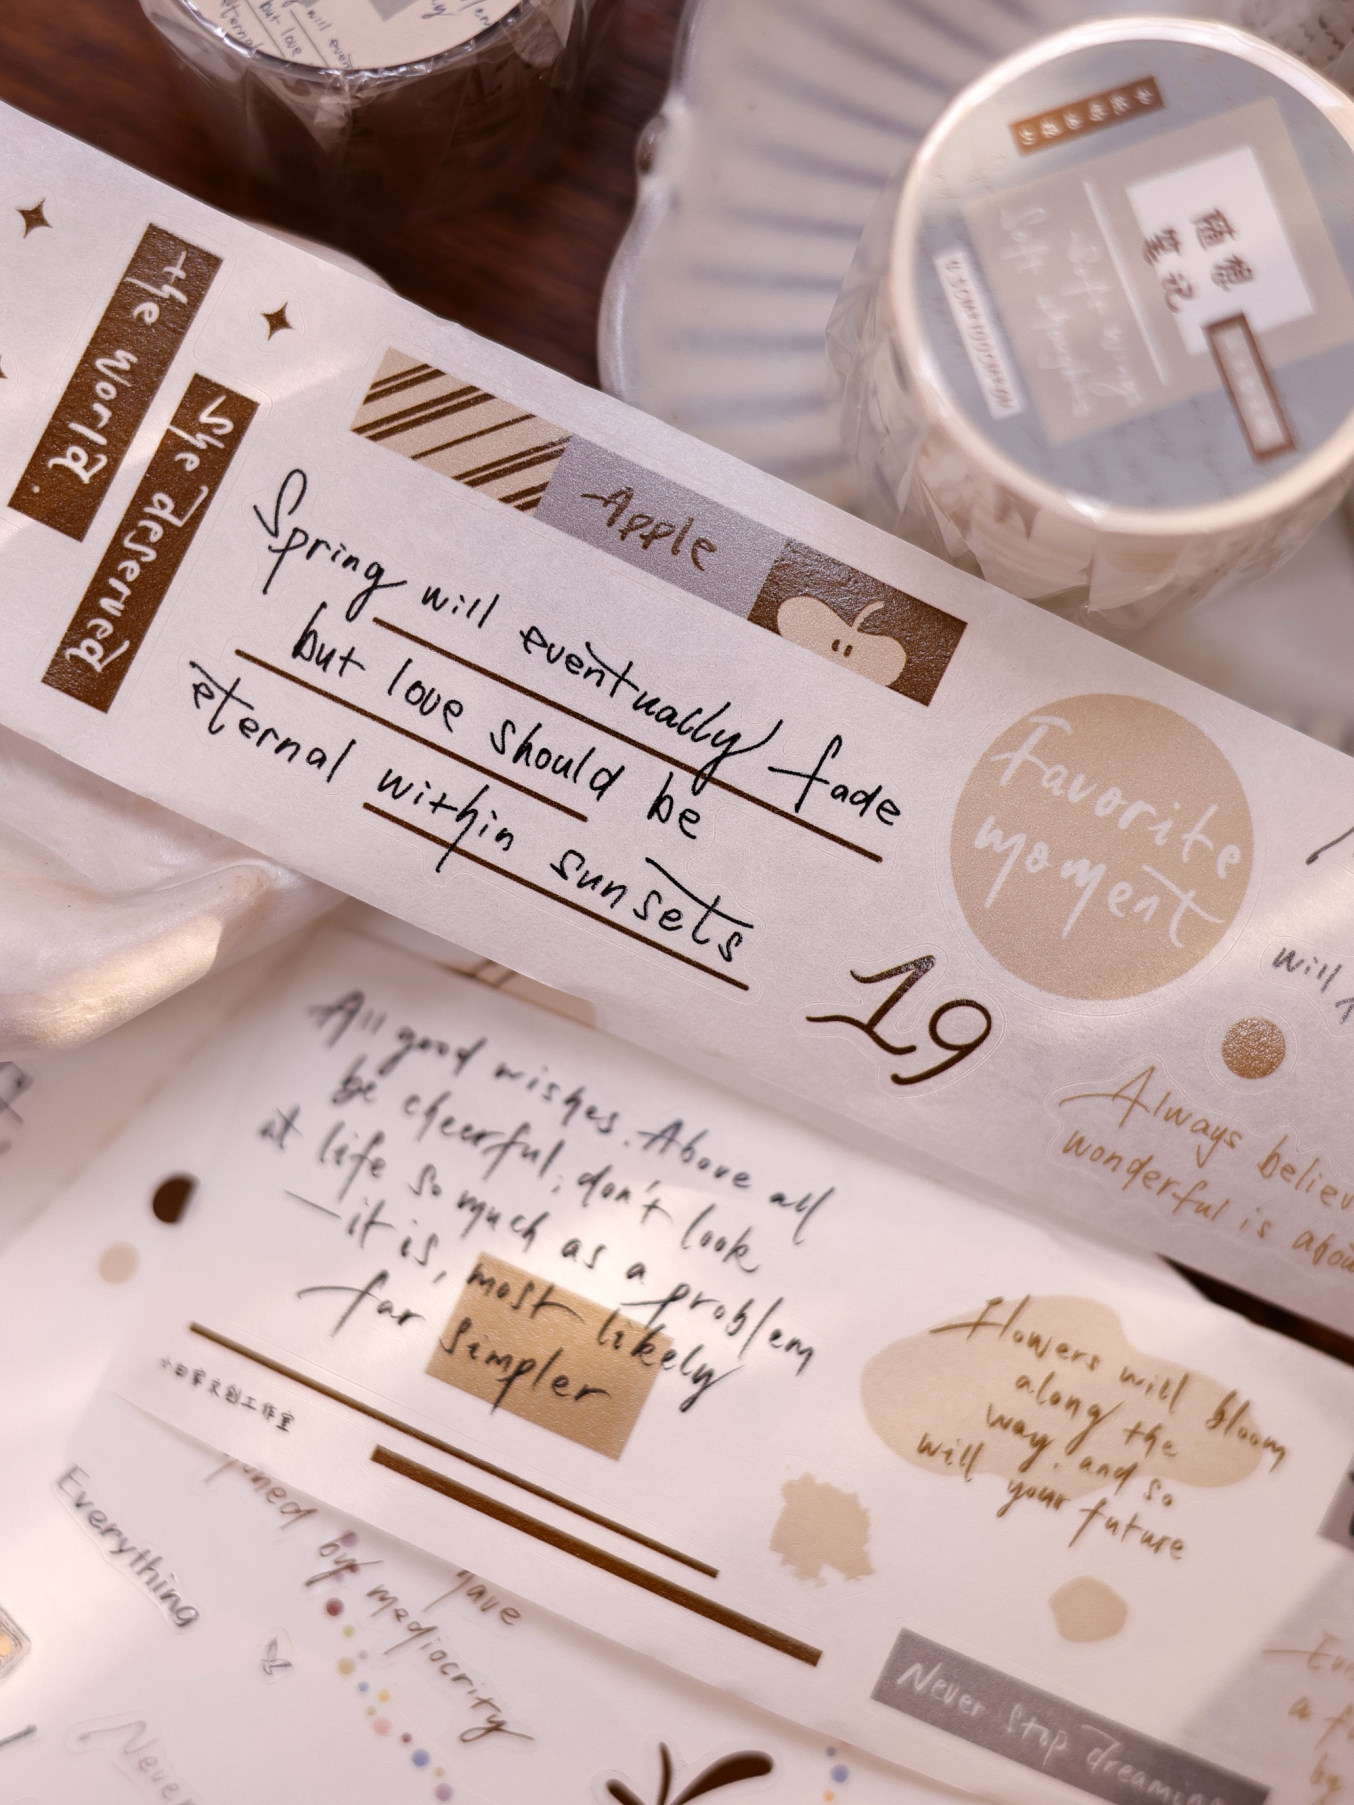 the world.
she deserved
Apple
Spring will eventually fade
but love should be
eternal within sunsets
Favorite
moment
19
will
Always
wonderful is
All good wishes. Above all
be cheerful; don't look
at life so much as a problem
—it is, most likely
far simpler
小日家文创工作室
Flowers will bloom
along the
way. and so
will your future
Never Stop dreaming
Everything
by mediocrity
Never
but love
随想
笔记